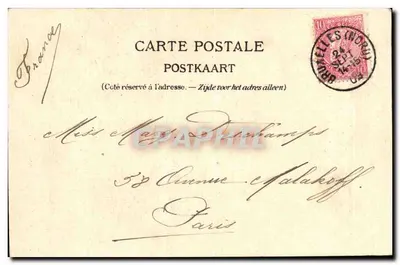 France
CARTE POSTALE
POSTKAART
(Coté réservé à l'adresse. — Zijde voor het adres alleen)
BRUXELLES (NORD)
24
SEPT
14-15
Miss Mary Deschamps
58 Avenue Malakoff.
Paris